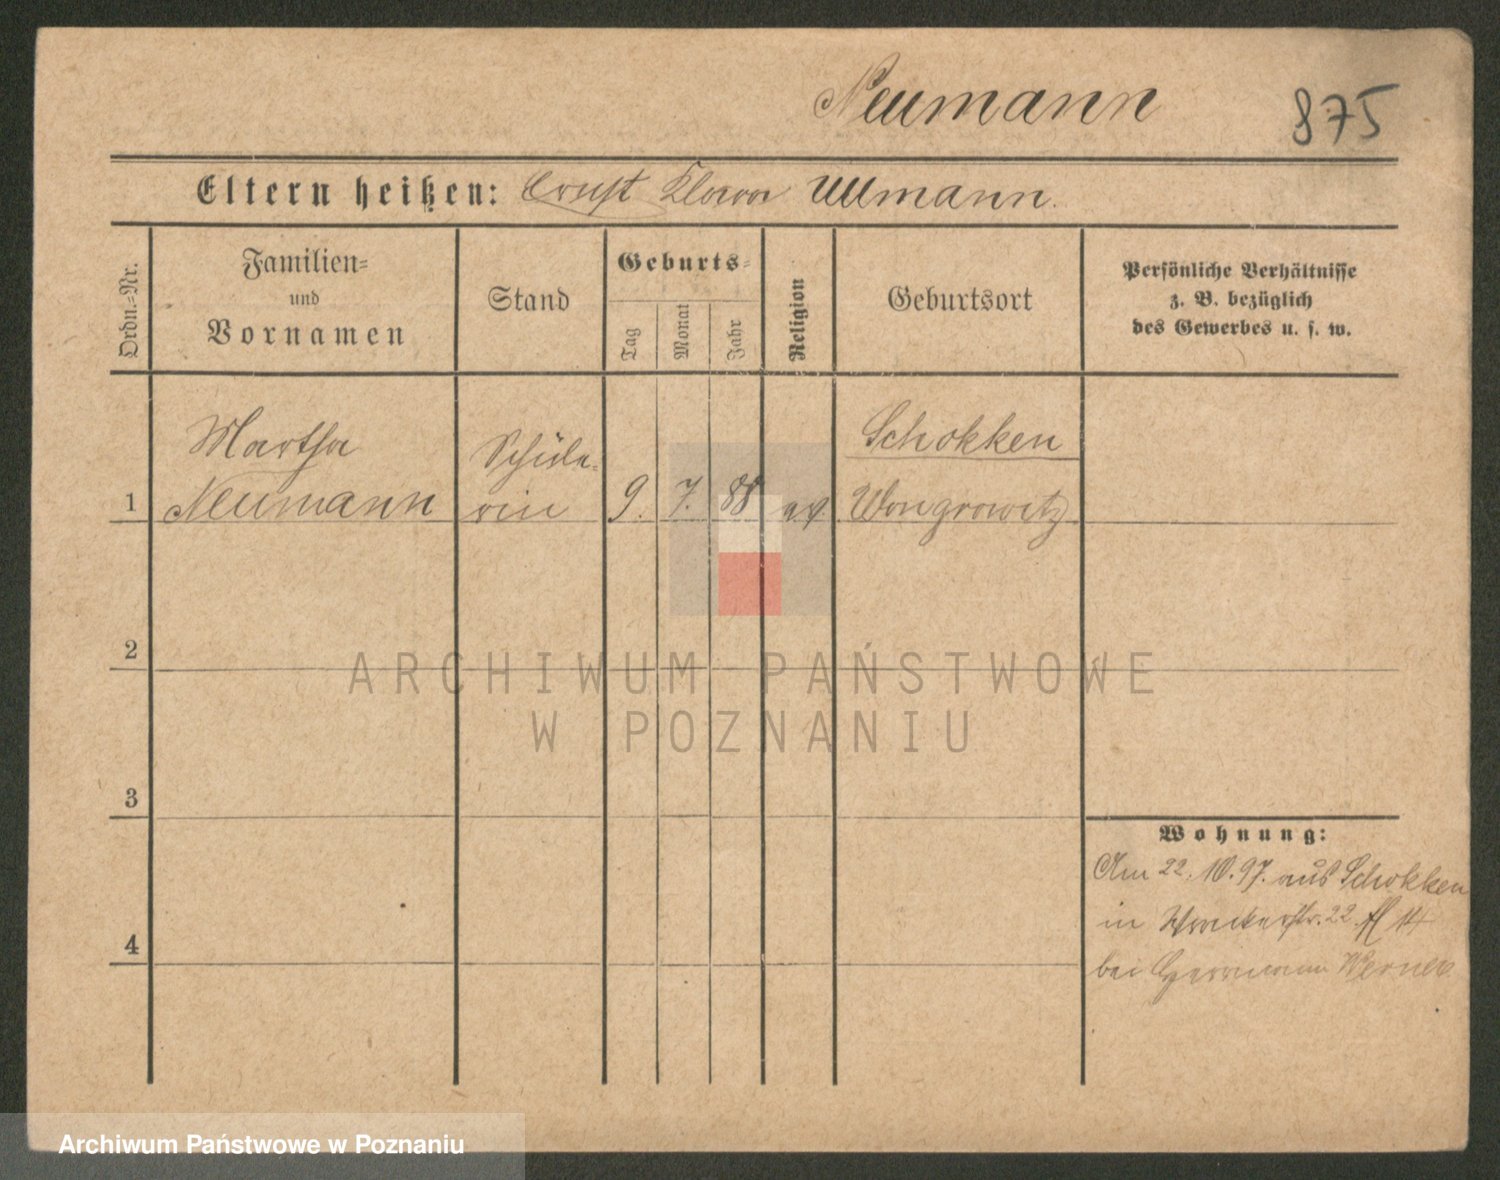 Neumann
875
Eltern heißen: Ernst Klara Ullmann.
Ordn.-Nr.
Familien-
und
Vornamen
Stand
Geburts-
Tag
Monat
Jahr
Religion
Geburtsort
Persönliche Verhältnisse
z. B. bezüglich
des Gewerbes u. s. w.
1
Martha
Neumann
Schüle-
rin
9.
7.
88
ev
Schokken
Wongrowitz
2
ARCHIWUM PAŃSTWOWE
W POZNANIU
3
4
Wohnung:
Am 22. 10. 97. aus Schokken
in 22
bei Werner
Archiwum Państwowe w Poznaniu